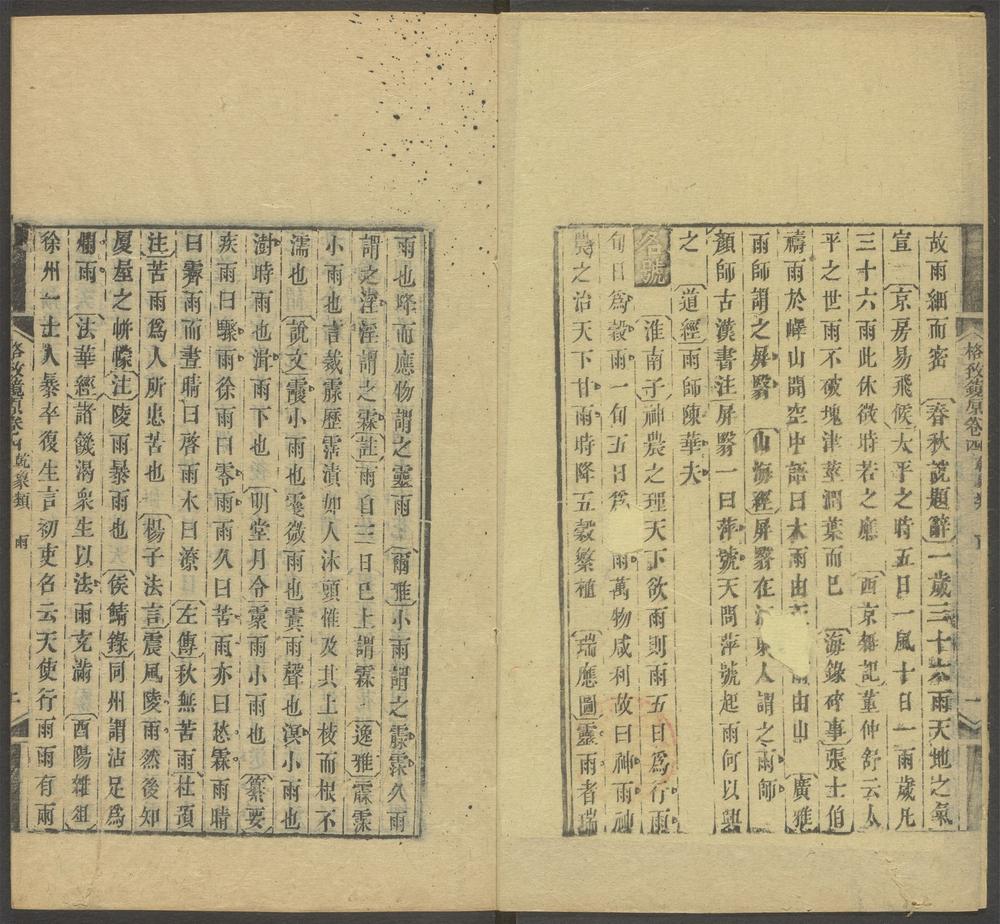 格致鏡原卷四
故雨細而密〔春秋說題辭〕一歲三十六雨天地之氣
宣〔京房易飛候〕太平之時五日一風十日一雨歲凡
三十六雨此休徵時若之應〔西京雜記〕董仲舒云太
平之世雨不破塊津莖潤葉而已〔海錄碎事〕張士伯
禱雨於嶧山聞空中語曰木雨由 雨由山〔廣雅〕
雨師謂之屏翳〔山海經〕屏翳在 東人謂之雨師
顏師古漢書注屏翳一曰萍號天問萍號起雨何以興
之〔道經〕雨師陳華夫
名號〔淮南子〕神農之理天下欲雨則雨五日為行雨
旬日為穀雨一旬五日為 雨萬物咸利故曰神雨神
農之治天下甘雨時降五穀繁植〔瑞應圖〕靈雨者瑞
雨也降而應物謂之靈雨〔爾雅〕小雨謂之霡霂久雨
謂之淫淫謂之霖〔註〕雨自三日已上謂霖〔逸雅〕霡霂
小雨也言裁霡歷霑漬如人沐頭惟及其上枝而根不
濡也〔說文〕霞小雨也霎微雨也 雨聲也溟小雨也
澍時雨也 雨下也〔明堂月令〕霥雨小雨也〔纂要〕
疾雨曰驟雨徐雨曰零雨雨久曰苦雨亦曰愁霖雨晴
曰霽雨而晝晴曰啓雨水曰潦〔左傳〕秋無苦雨〔杜預
注〕苦雨爲人所患苦也〔楊子法言〕震風陵雨然後知
厦屋之帡幪〔注〕陵雨暴雨也〔侯鯖錄〕同州謂沾足爲
爛雨〔法華經〕諸饑渴衆生以法雨充滿〔酉陽雜俎〕
徐州一士人暴卒復生言初吏名云天使行雨雨有雨
格致鏡原卷四 乾象類 雨 二